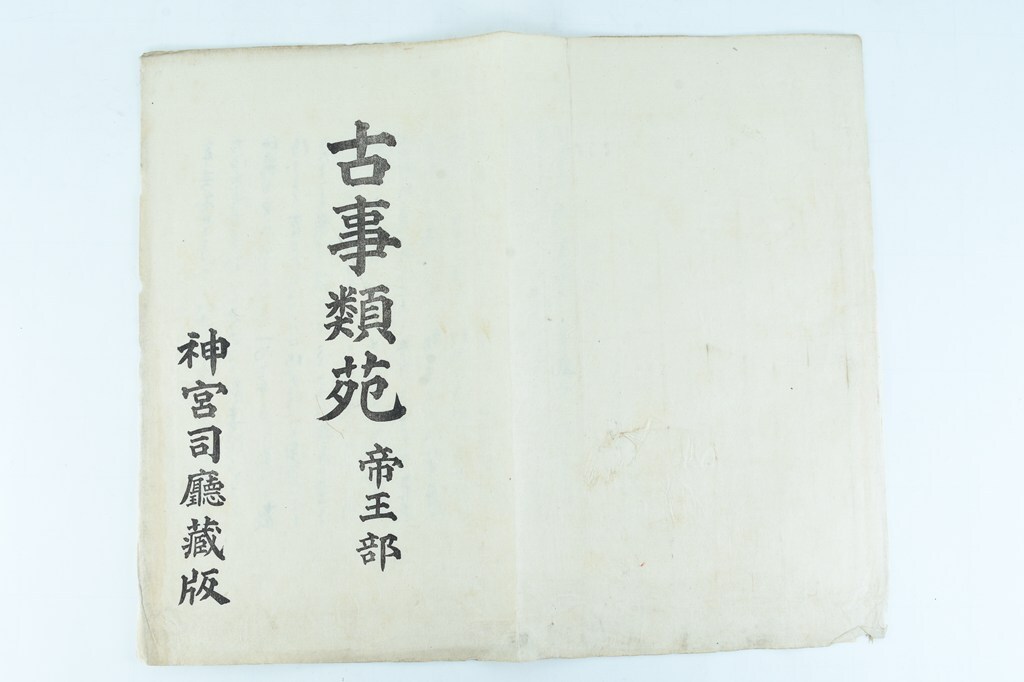 古事類苑 帝王部
神宮司廳藏版